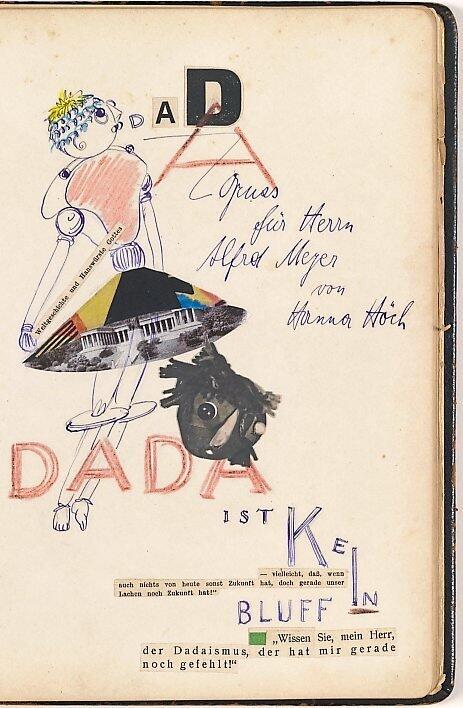 DADA
Gruss
für Herrn
Alfred Meyer
von
Hanna Höch
Weltgeschichte und Hanswürste Gottes
DADA
IST KEIN
— vielleicht, daß, wenn
auch nichts von heute sonst Zukunft hat, doch gerade unser
Lachen noch Zukunft hat!"
BLUFF
„Wissen Sie, mein Herr,
der Dadaismus, der hat mir gerade
noch gefehlt!“